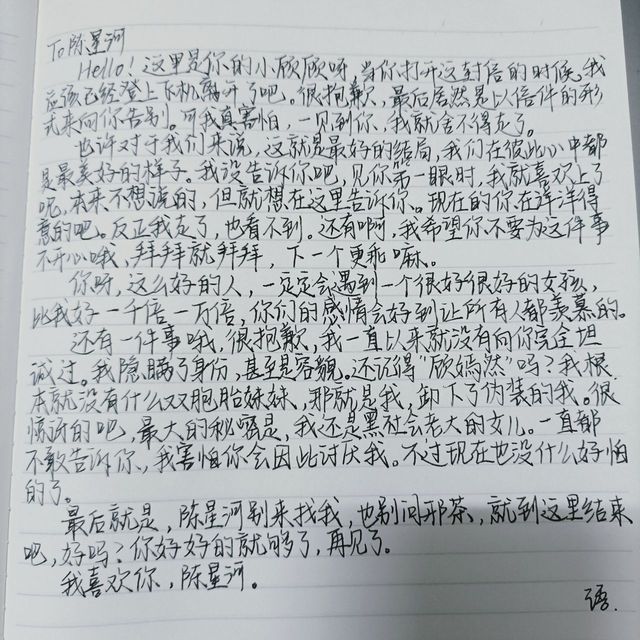 To陈星河
Hello! 这里是你的小欣欣呀,当你打开这封信的时候,我
应该已经登上飞机离开了吧。很抱歉,最后居然是以信件的形
式来向你告别。可我真害怕,一见到你,我就舍不得走了。
也许对于我们来说,这就是最好的结局,我们在彼此心中都
是最美好的样子。我没告诉你吧,见你第一眼时,我就喜欢上了
呢,本来不想说的,但就想在这里告诉你。现在的你在洋洋得
意的吧。反正我走了,也看不到。还有啊,我希望你不要为这件事
不开心哦,拜拜就拜拜,下一个更乖嘛。
你呀,这么好的人,一定定会遇到一个很好很好的女孩,
比我好一千倍一万倍,你们的感情会好到让所有人都羡慕的。
还有一件事哦,很抱歉,我一直以来就没有向你完全坦
诚过。我隐瞒了身份,甚至是容貌。还记得“欣嫣然”吗?我根
本就没有什么双胞胎妹妹,那就是我,卸下了伪装的我。很
惊讶的吧,最大的秘密是,我还是黑社会老大的女儿。一直都
不敢告诉你,我害怕你会因此讨厌我。不过现在也没什么好怕
的了。
最后就是,陈星河别来找我,也别问邢荼,就到这里结束
吧,好吗?你好好的就够了,再见了。
我喜欢你,陈星河。
语.